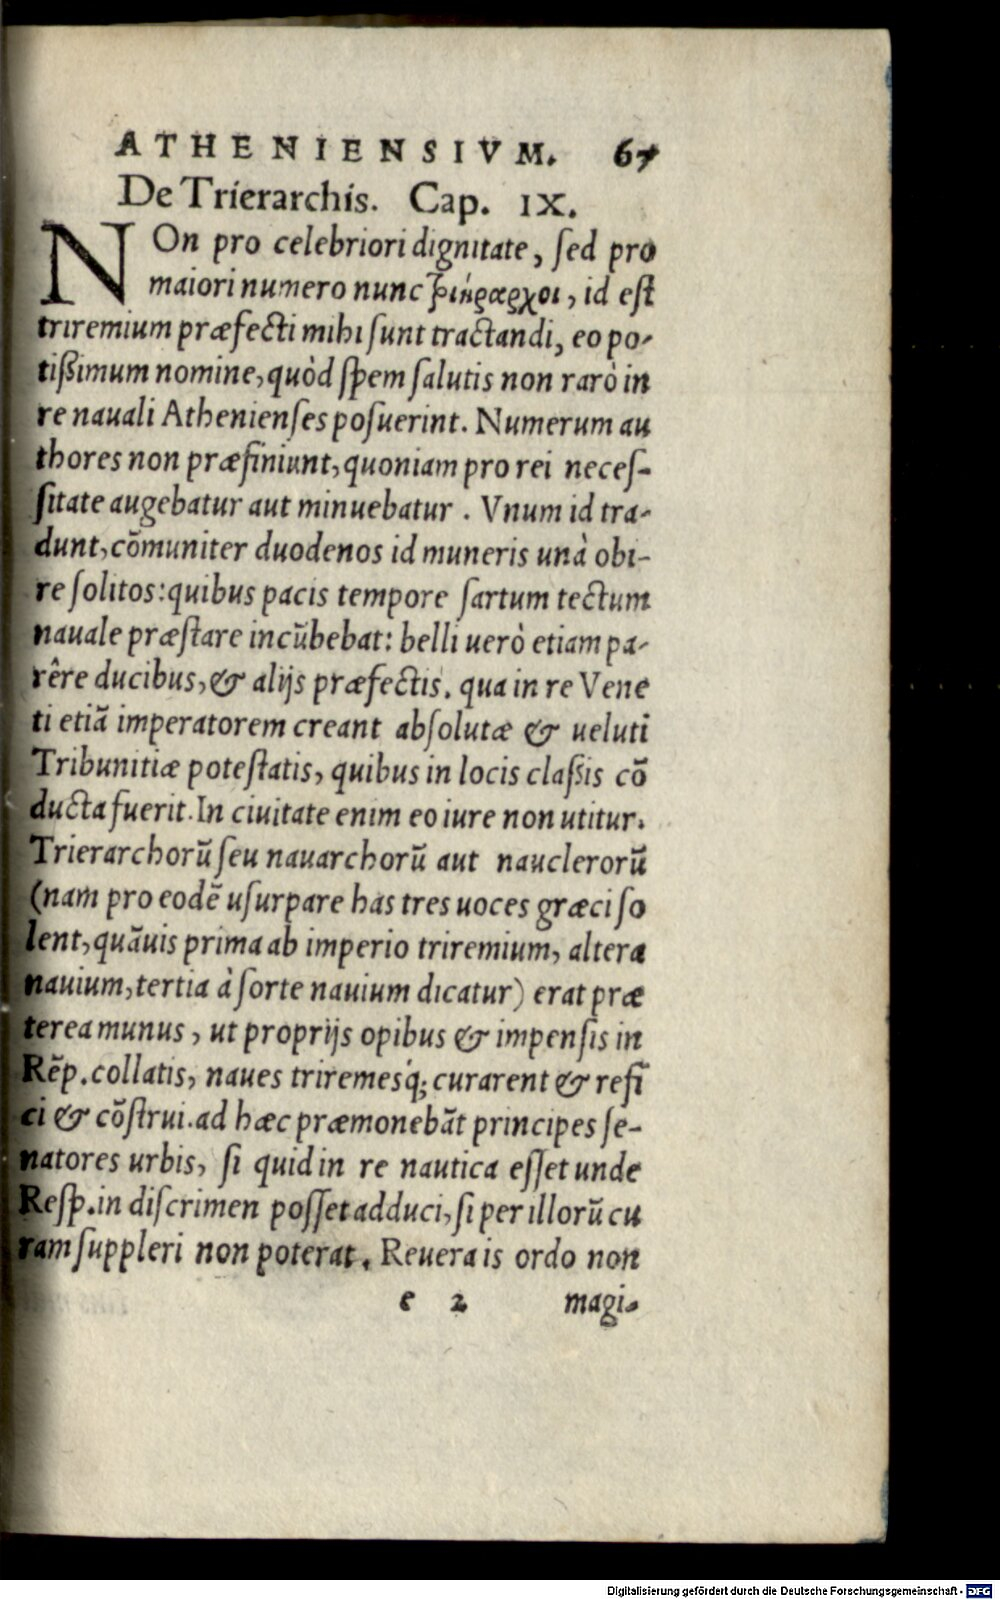 ATHENIENSIVM. 67
De Trierarchis. Cap. IX.
NOn pro celebriori dignitate, ſed pro
maiori numero nunc τριήραρχοι, id eſt
triremium præfecti mihi ſunt tractandi, eo po-
tißimum nomine, quòd ſpem ſalutis non rarò in
re nauali Athenienſes poſuerint. Numerum au
thores non præfiniunt, quoniam pro rei neceſ-
ſitate augebatur aut minuebatur. Vnum id tra-
dunt, cõmuniter duodenos id muneris unà obi-
re ſolitos: quibus pacis tempore ſartum tectum
nauale præſtare incũbebat: belli uerò etiam pa-
rêre ducibus, & alijs præfectis. qua in re Vene
ti etiã imperatorem creant abſolutæ & ueluti
Tribunitiæ poteſtatis, quibus in locis claßis cõ
ducta fuerit. In ciuitate enim eo iure non utitur.
Trierarchorũ ſeu nauarchorũ aut nauclerorũ
(nam pro eodẽ uſurpare has tres uoces græci ſo
lent, quãuis prima ab imperio triremium, altera
nauium, tertia à ſorte nauium dicatur) erat præ
terea munus, ut proprijs opibus & impenſis in
Rẽp. collatis, naues triremesq́; curarent & refi
ci & cõſtrui. ad hæc præmonebãt principes ſe-
natores urbis, ſi quid in re nautica eſſet unde
Reſp. in diſcrimen poſſet adduci, ſi per illorũ cu
ram ſuppleri non poterat. Reuera is ordo non
e 2 magi-
Digitalisierung gefördert durch die Deutsche Forschungsgemeinschaft - DFG